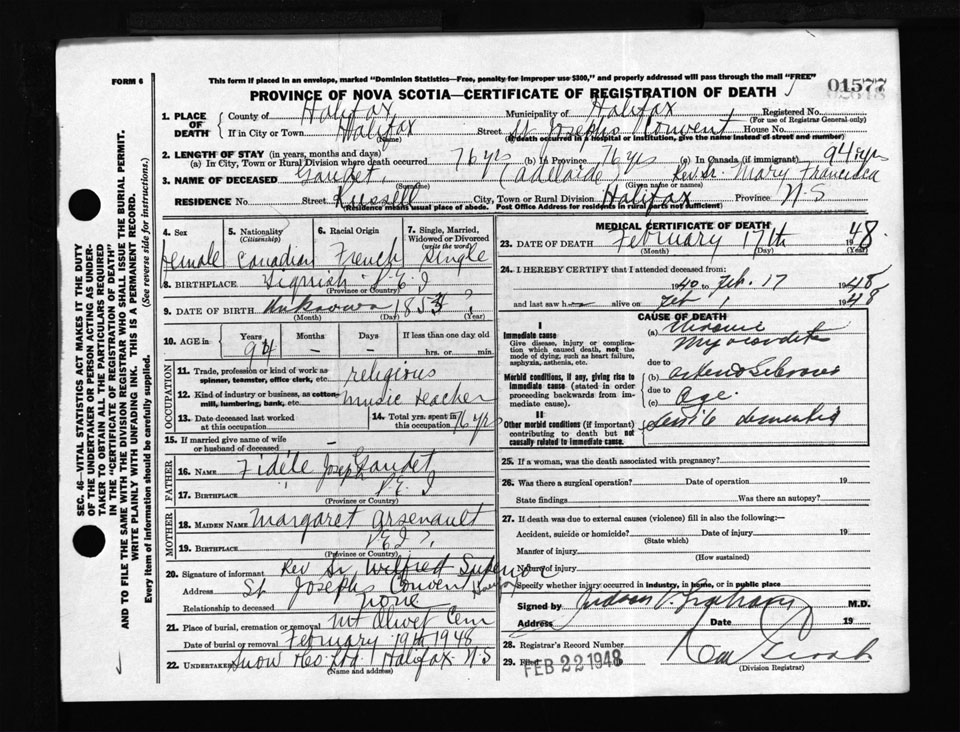 FORM 6
This form if placed in an envelope, marked "Dominion Statistics—Free, penalty for improper use $300," and properly addressed will pass through the mail "FREE"
01577
PROVINCE OF NOVA SCOTIA—CERTIFICATE OF REGISTRATION OF DEATH
1. PLACE OF DEATH
County of Halifax
Municipality of Halifax
Registered No.
(For use of Registrar General only)
If in City or Town Halifax
(Name)
Street St Josephs Convent House No.
(If death occurred in a hospital or institution, give the name instead of street and number)
2. LENGTH OF STAY (in years, months and days)
(a) In City, Town or Rural Division where death occurred 76 yrs (b) In Province 76 yrs (c) In Canada (if immigrant) 94 yrs
3. NAME OF DECEASED Gaudet, (Adelaide) Rev. Sr. Mary Francisca
(Surname) (Given name or names)
RESIDENCE No. Street Russell City, Town or Rural Division Halifax Province N-S
(Residence means usual place of abode. Post Office Address for residents in rural parts not sufficient)
4. Sex
female
5. Nationality
(Citizenship)
Canadian
6. Racial Origin
French
7. Single, Married, Widowed or Divorced
(write the word)
Single
8. BIRTHPLACE Tignish P.E.I
(Province or Country)
9. DATE OF BIRTH Unknown 185 ?
(Month) (Day) (Year)
10. AGE in
Years Months Days If less than one day old
94 – – hrs. or min.
OCCUPATION
11. Trade, profession or kind of work as spinner, teamster, office clerk, etc. religious
12. Kind of industry or business, as cotton-mill, lumbering, bank, etc. music teacher
13. Date deceased last worked at this occupation
14. Total yrs. spent in this occupation 76 yrs
15. If married give name of wife or husband of deceased
FATHER
16. NAME Fidéle Joseph Gaudet
17. BIRTHPLACE P.E.I
(Province or Country)
MOTHER
18. MAIDEN NAME Margaret Arsenault
19. BIRTHPLACE P.E.I.
(Province or Country)
20. Signature of informant Rev Sr Wilfred Superior
Address St Josephs Convent
Relationship to deceased none
21. Place of burial, cremation or removal Mt Olivet Cem
Date of burial or removal February 19th 1948
22. UNDERTAKER Snow & Co. Ltd Halifax N-S
(Name and address)
MEDICAL CERTIFICATE OF DEATH
23. DATE OF DEATH February 17th 1948
(Month) (Day) (Year)
24. I HEREBY CERTIFY that I attended deceased from:
1940 to Feb. 17 1948
and last saw h alive on Feb 1 1948
CAUSE OF DEATH
I
Immediate cause
Give disease, injury or complication which caused death, not the mode of dying, such as heart failure, asphyxia, asthenia, etc.
(a) Chronic Myocarditis
due to
Morbid conditions, if any, giving rise to immediate cause (stated in order proceeding backwards from immediate cause).
(b) arteriosclerosis
due to
(c) age.
II
Other morbid conditions (if important) contributing to death but not causally related to immediate cause.
senile dementia
25. If a woman, was the death associated with pregnancy?
26. Was there a surgical operation? Date of operation 19
State findings Was there an autopsy?
27. If death was due to external causes (violence) fill in also the following:—
Accident, suicide or homicide? Date of injury 19
(State which)
Manner of injury
(How sustained)
Nature of injury
Specify whether injury occurred in industry, in home, or in public place
Signed by Judson V. Graham M.D.
Address Date 19
28. Registrar's Record Number
29. Filed FEB 22 1948
(Division Registrar)
SEC. 46—VITAL STATISTICS ACT MAKES IT THE DUTY
OF THE UNDERTAKER OR PERSON ACTING AS UNDER-
TAKER TO OBTAIN ALL THE PARTICULARS REQUIRED
IN THE "CERTIFICATE OF REGISTRATION OF DEATH"
AND TO FILE THE SAME WITH THE DIVISION REGISTRAR WHO SHALL ISSUE THE BURIAL PERMIT.
WRITE PLAINLY WITH UNFADING INK. THIS IS A PERMANENT RECORD.
Every item of information should be carefully supplied. (See reverse side for instructions.)